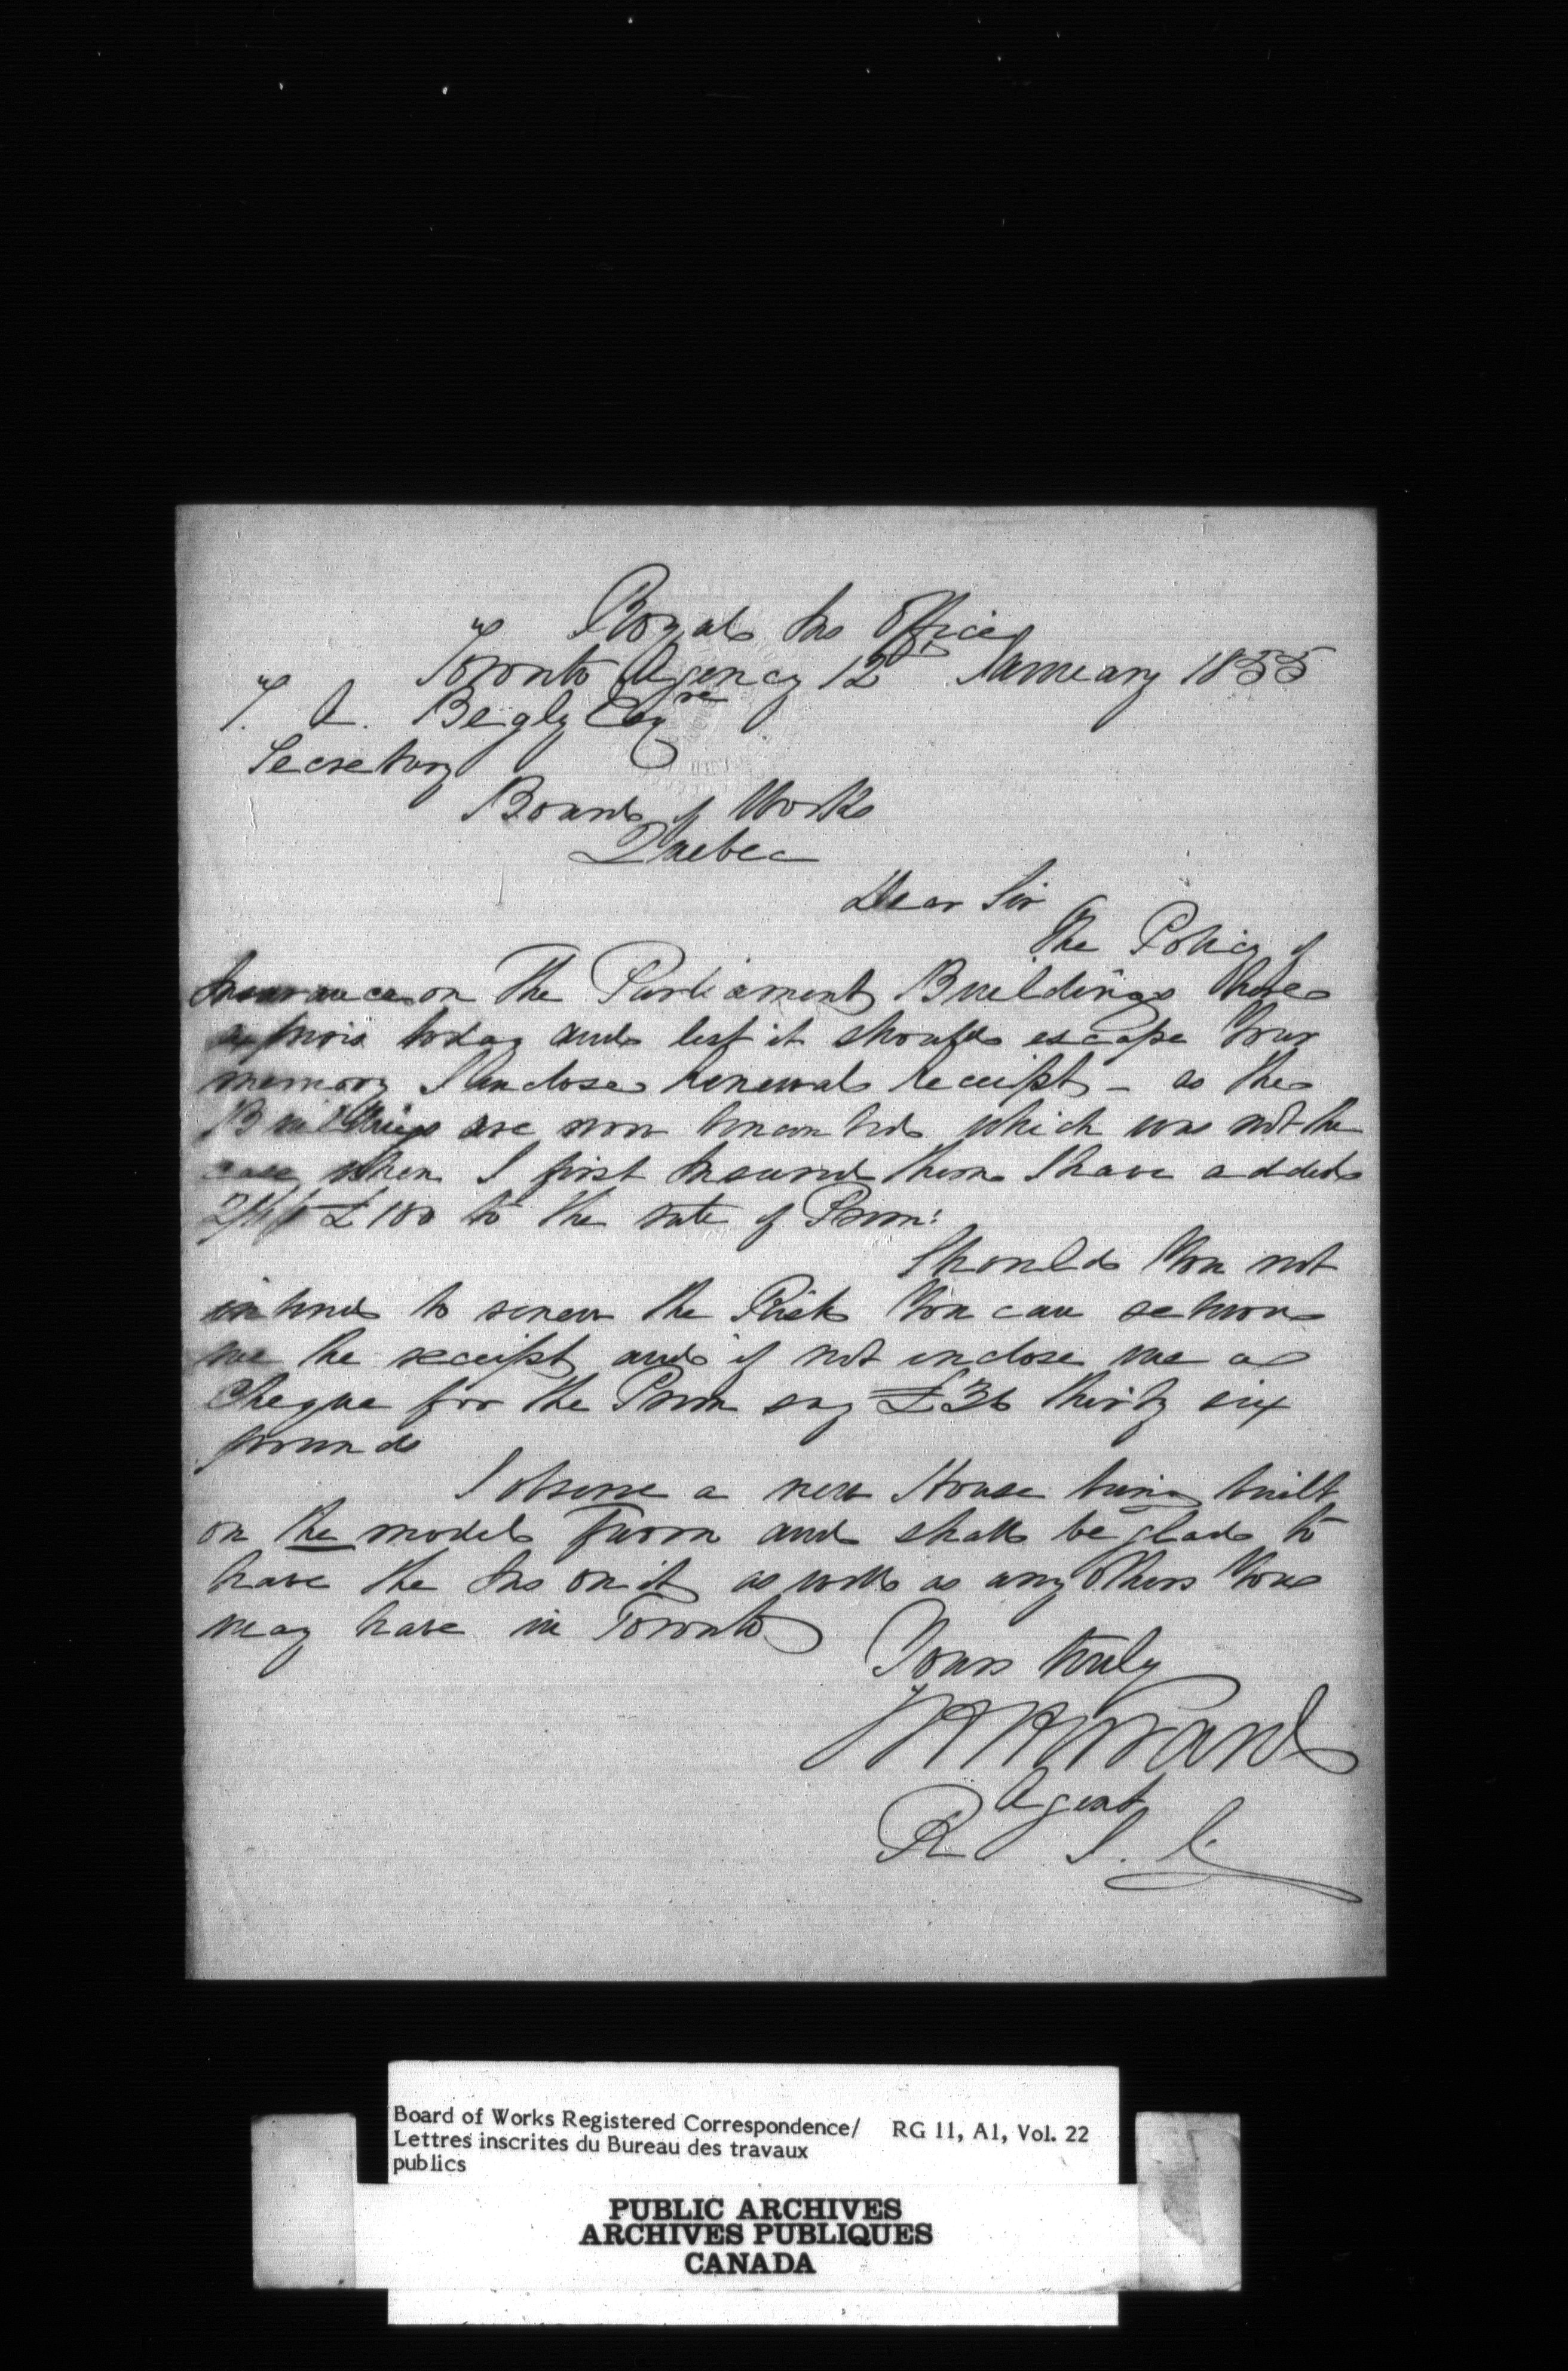 Royal Ins Office
Toronto Agency 12th January 1855
T. A. Begly Esqre
Secretary
Board of Works
Quebec
Dear Sir
The Policy of
Insurance on the Parliament Buildings here
expires today and lest it should escape Your
memory I enclose renewal receipt - as the
Buildings are now which was not the
case when I first Insured them I have added
£100 to the rate of Prem:
Should You not
intend to renew the Risk You can return
me the receipt and if not enclose me a
Cheque for the Prem say £36 thirty six
pounds
I observe a new House being built
on the model Farm and shall be glad to
have the Ins on it as well as any others You
may have in Toronto
Yours truly
Agent
R I. C
Board of Works Registered Correspondence/ RG 11, A1, Vol. 22
Lettres inscrites du Bureau des travaux
publics
PUBLIC ARCHIVES
ARCHIVES PUBLIQUES
CANADA